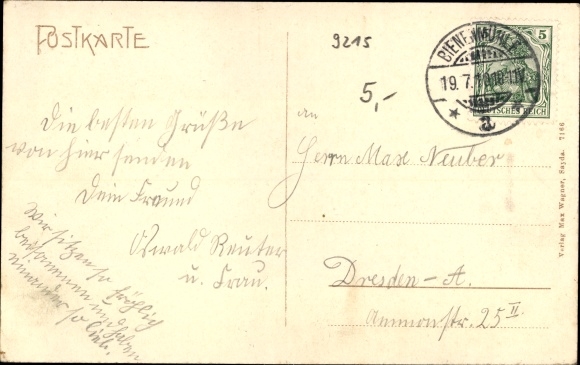 POSTKARTE
9215
5,-
BIENENMÜHLE
19.7.10
a
5
DEUTSCHES REICH
Die besten Grüße
von hier senden
Dein Freund
Oswald Reuter
u. Frau.
Wir sitzen so fröhlich
beisammen und haben
einander so lieb.
An
Herrn Max Neuber
Dresden-A.
Ammonstr. 25 II.
Verlag Max Wagner, Sayda. 7166